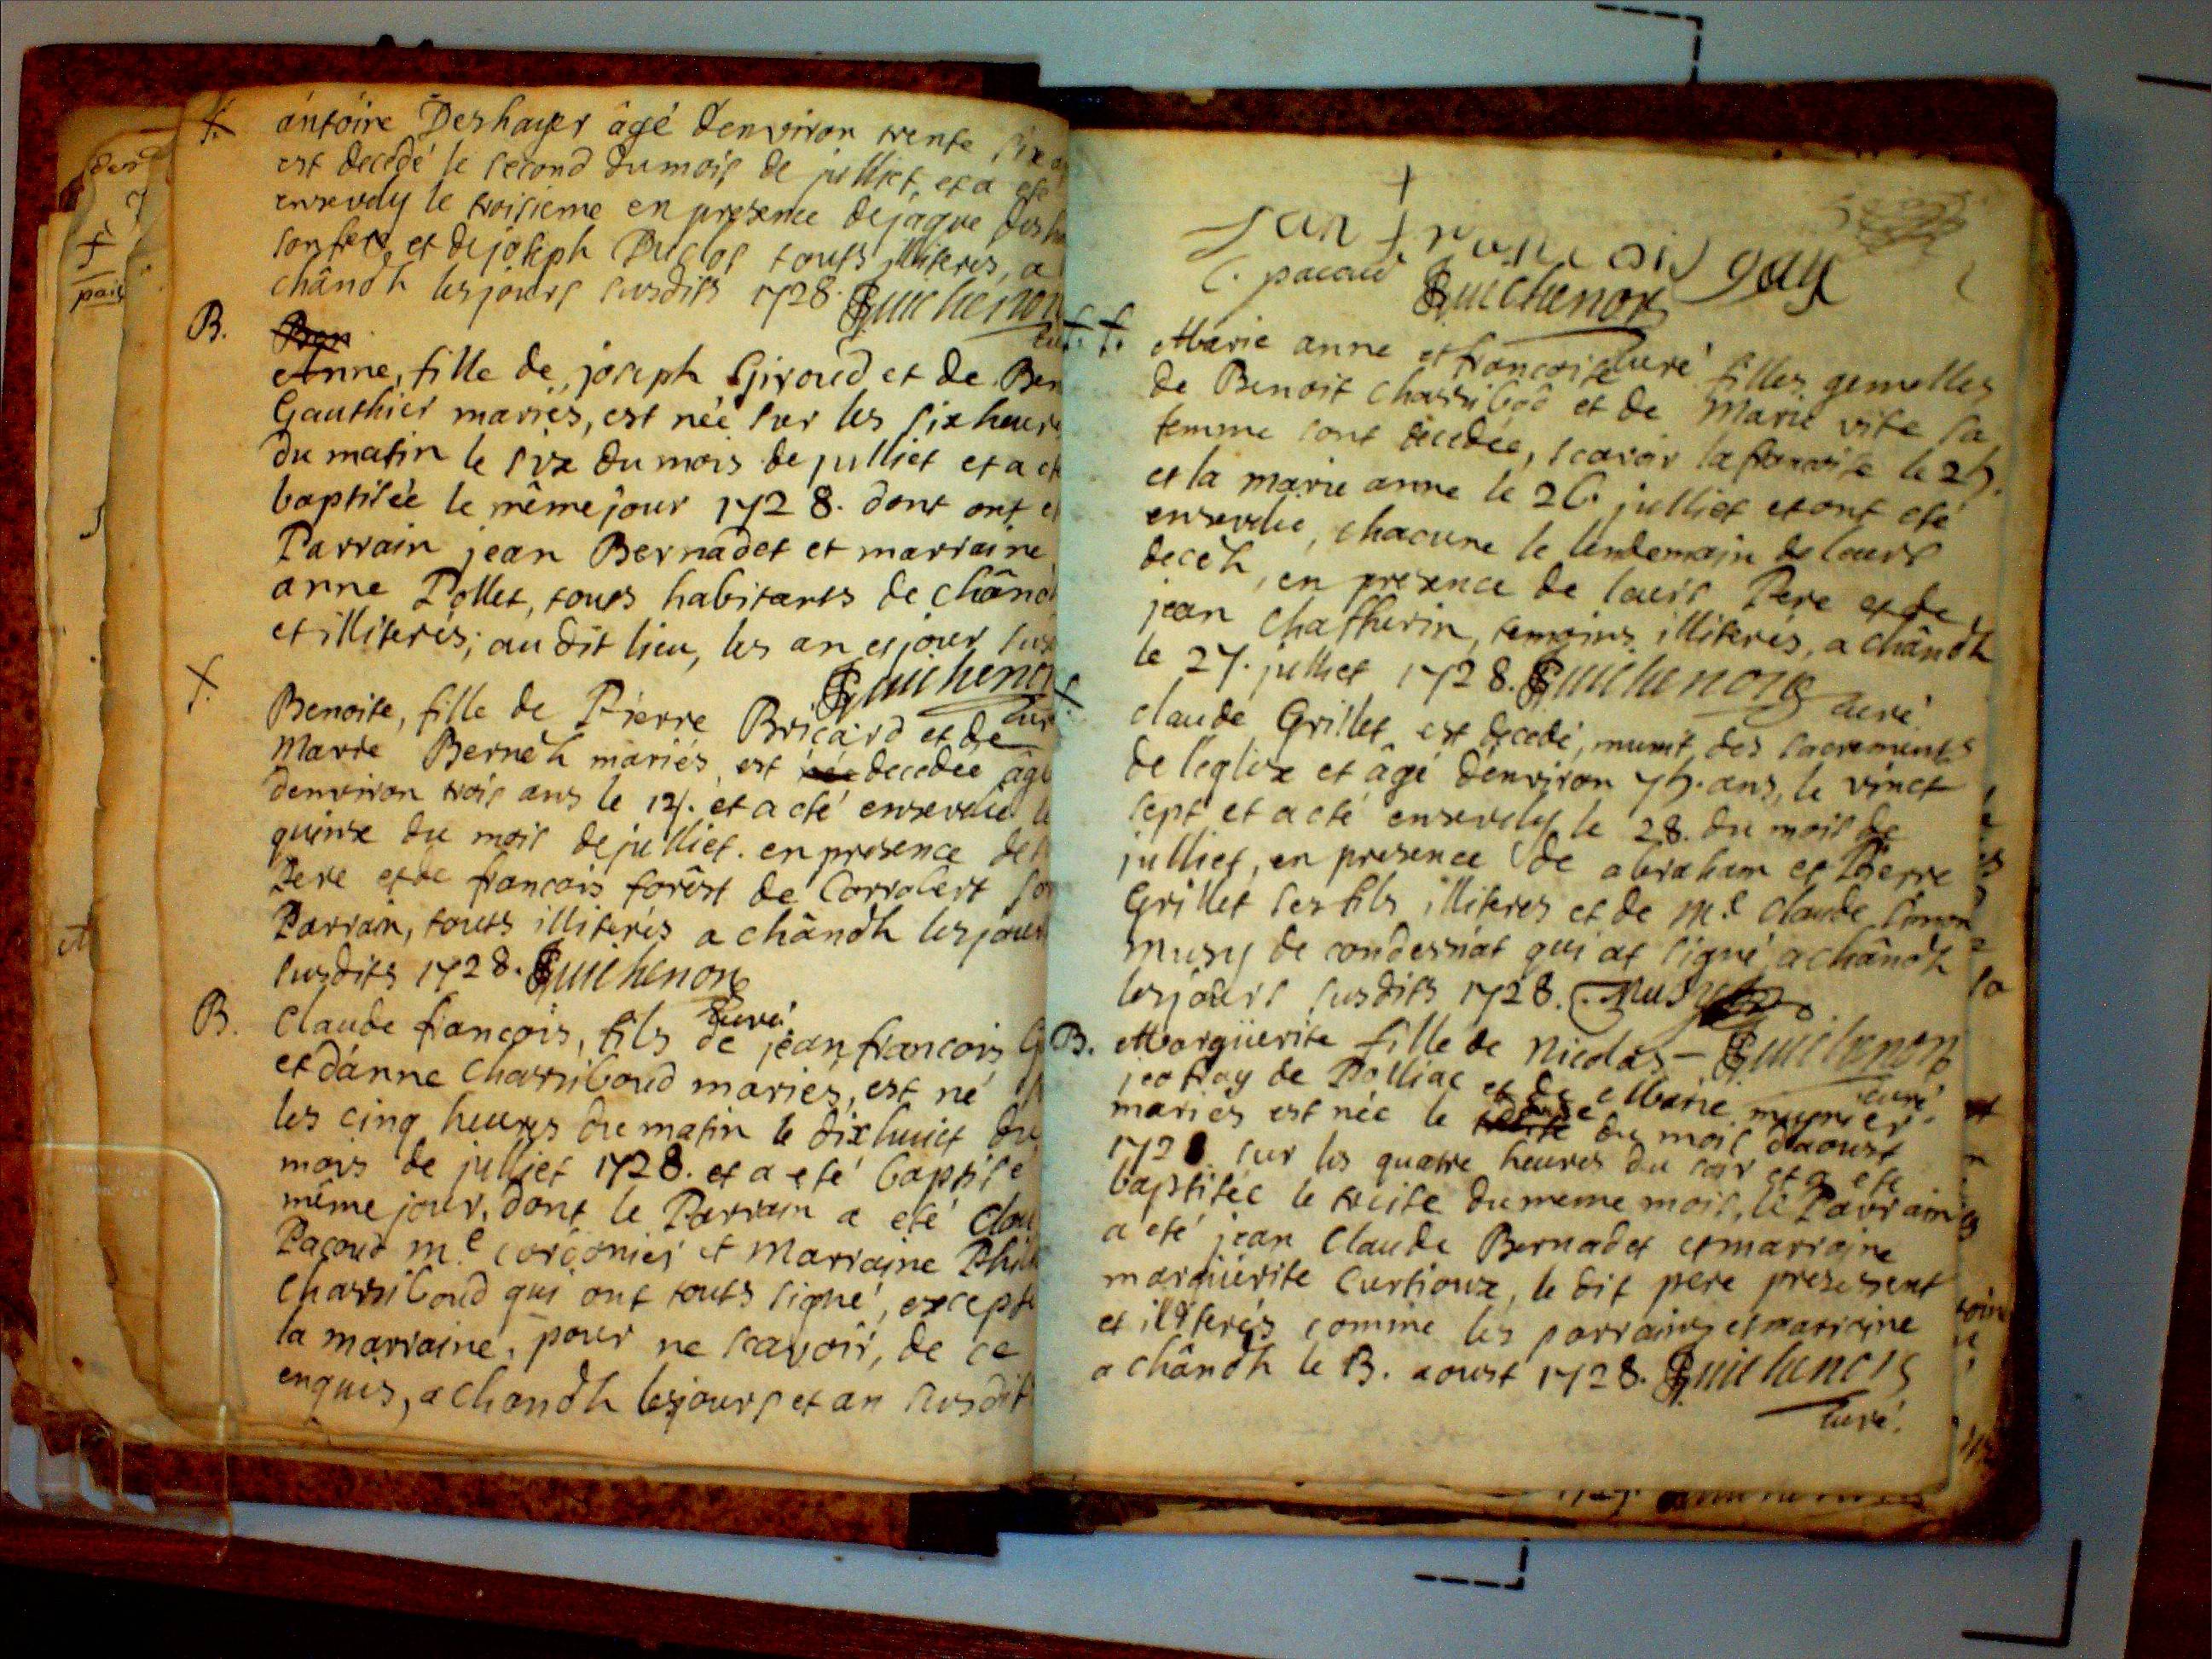 antoine Deshayes âgé denviron trente six
est decedé le second du mois de julliet, et a eté
ensevely le troisieme en presence de jaque
son frere, et de joseph Duclos touts illiterés, a
chândh les jours susdits 1728. Guichenon
curé
B. Ben
Anne, fille de joseph Giroud et de Ben
Gauthier mariés, est née sur les six heures
du matin le six du mois de julliet et a eté
baptisée le même jour 1728. dont ont
Parrain jean Bernadet et marraine
anne Pollet, touts habitants de chând
et illiterés; au dit lieu, les an et jour
Guichenon
curé
Benoite, fille de Pierre Bricard et de
Marie Berneth mariés, est née decedée âgé
denviron trois ans le 14. et a eté ensevelie
quinse du mois de julliet. en presence de
Pere et de francois forêst de Corrobert son
Parrain, touts illiterés a chândh les jours
susdits 1728. Guichenon
curé
B. Claude françois, fils de jean francois G
et dánne Chassiboud mariés, est né
les cinq heures du matin le dixhuict du
mois de julliet 1728. et a eté baptisé
même jour, dont le Parrain a eté Clau
Pacoud me cordonier et Marraine Phil
Chassiboud qui ont touts signé, excepté
la marraine, pour ne scavoir, de ce
enquis, a chandh les jours et an susdit
jan francois gay
C. pacoud Guichenon
curé
Marie anne et francoise filles gemelles
de Benoit chassibod et de Marie vite sa
femme sont decedée, scavoir la francoise le 25.
et la marie anne le 26. julliet et ont eté
ensevelie, chacune le lendemain de leurs
decêh, en presence de leurs Pere et de
jean Chaffurin, temoins illiterés, a chândh
le 27. julliet 1728. Guichenon curé
claude Grillet est decedé, munit des sacrements
de l'eglise et âgé d'environ 75. ans, le vinct
sept et a eté ensevely le 28. du mois de
julliet, en presence de abraham et Pierre
Grillet ses fils illiteres et de me Claude
Musy de condessiat qui at signé a chândh
les jours susdits 1728. Musy
B. Margüerite fille de Nicolas – Guichenon
curé
jeoffray de Polliac et de Marie munier
mariés est née le du mois d'aoust
1728 sur les quatre heures du soir et a ete
baptisée le treise du meme mois, le Parrain
a eté jean Claude Bernadet et marraine
margüerite Curtioux, le dit pere present
et illiterés comme les parrains et marraine
a chândh le 13. aoust 1728. Guichenon
curé.